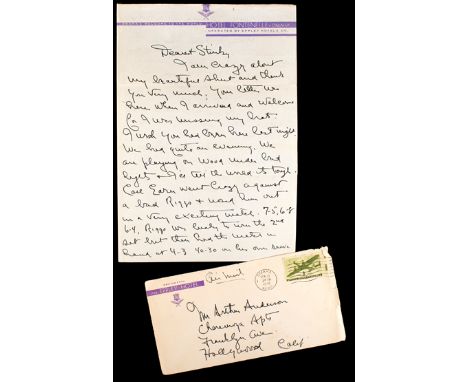 HOTEL FONTENELLE
OPERATED BY EPPLEY HOTELS CO.
Dearest Stinky
I am crazy about
my beautiful shirt and thank
you very much. Your letter was
here when I arrived and welcome
for I was missing my brat.
I wish you had been here last night
We had quite an evening. We
are playing on wood under bad
lights + I tell the world its tough.
Earl went crazy against
a bad Riggs + nosed him out
in a very exciting match. 7-5, 6-8
6-4. Riggs was lucky to win the 2nd
set but then had the match in
hand at 4-3 40-30 on his own serve
AN EPPLEY HOTEL
Air Mail
OMAHA
Mr Arthur Anderson
Apts
Franklin Ave
Hollywood Calif.